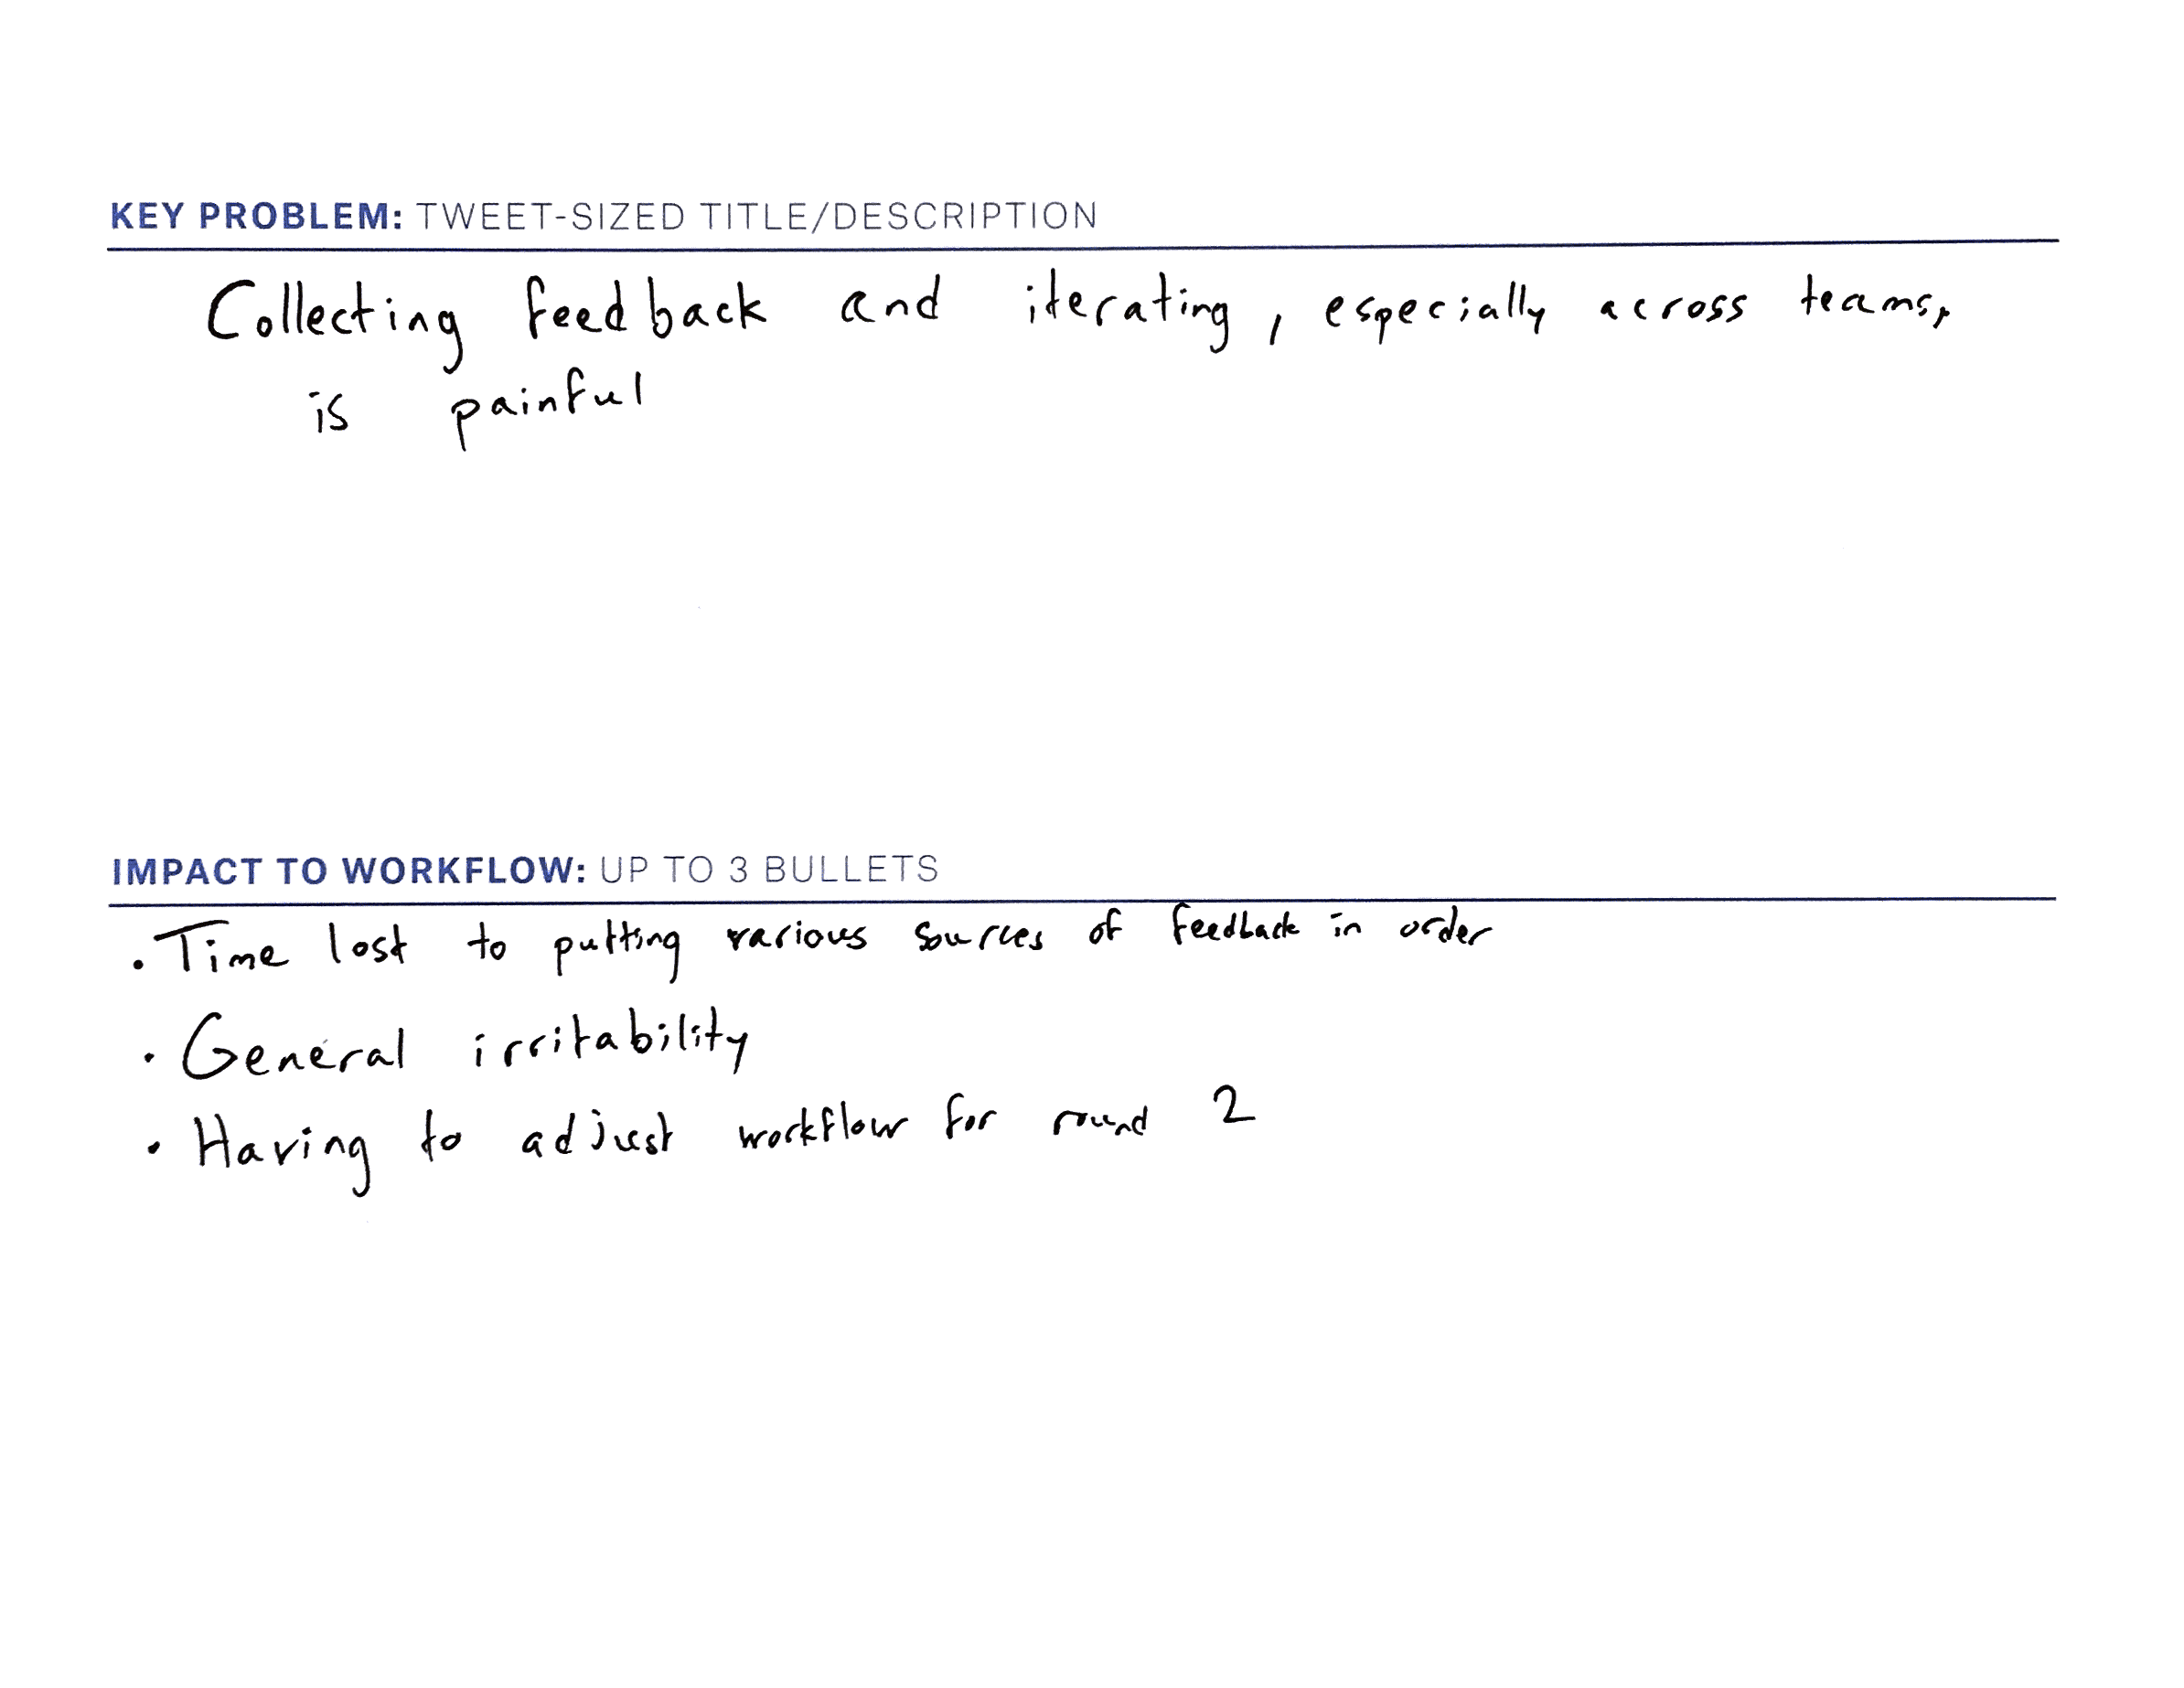 KEY PROBLEM: TWEET-SIZED TITLE/DESCRIPTION
Collecting feedback and iterating, especially across teams,
is painful
IMPACT TO WORKFLOW: UP TO 3 BULLETS
• Time lost to putting various sources of feedback in order
• General irritability
• Having to adjust workflow for round 2